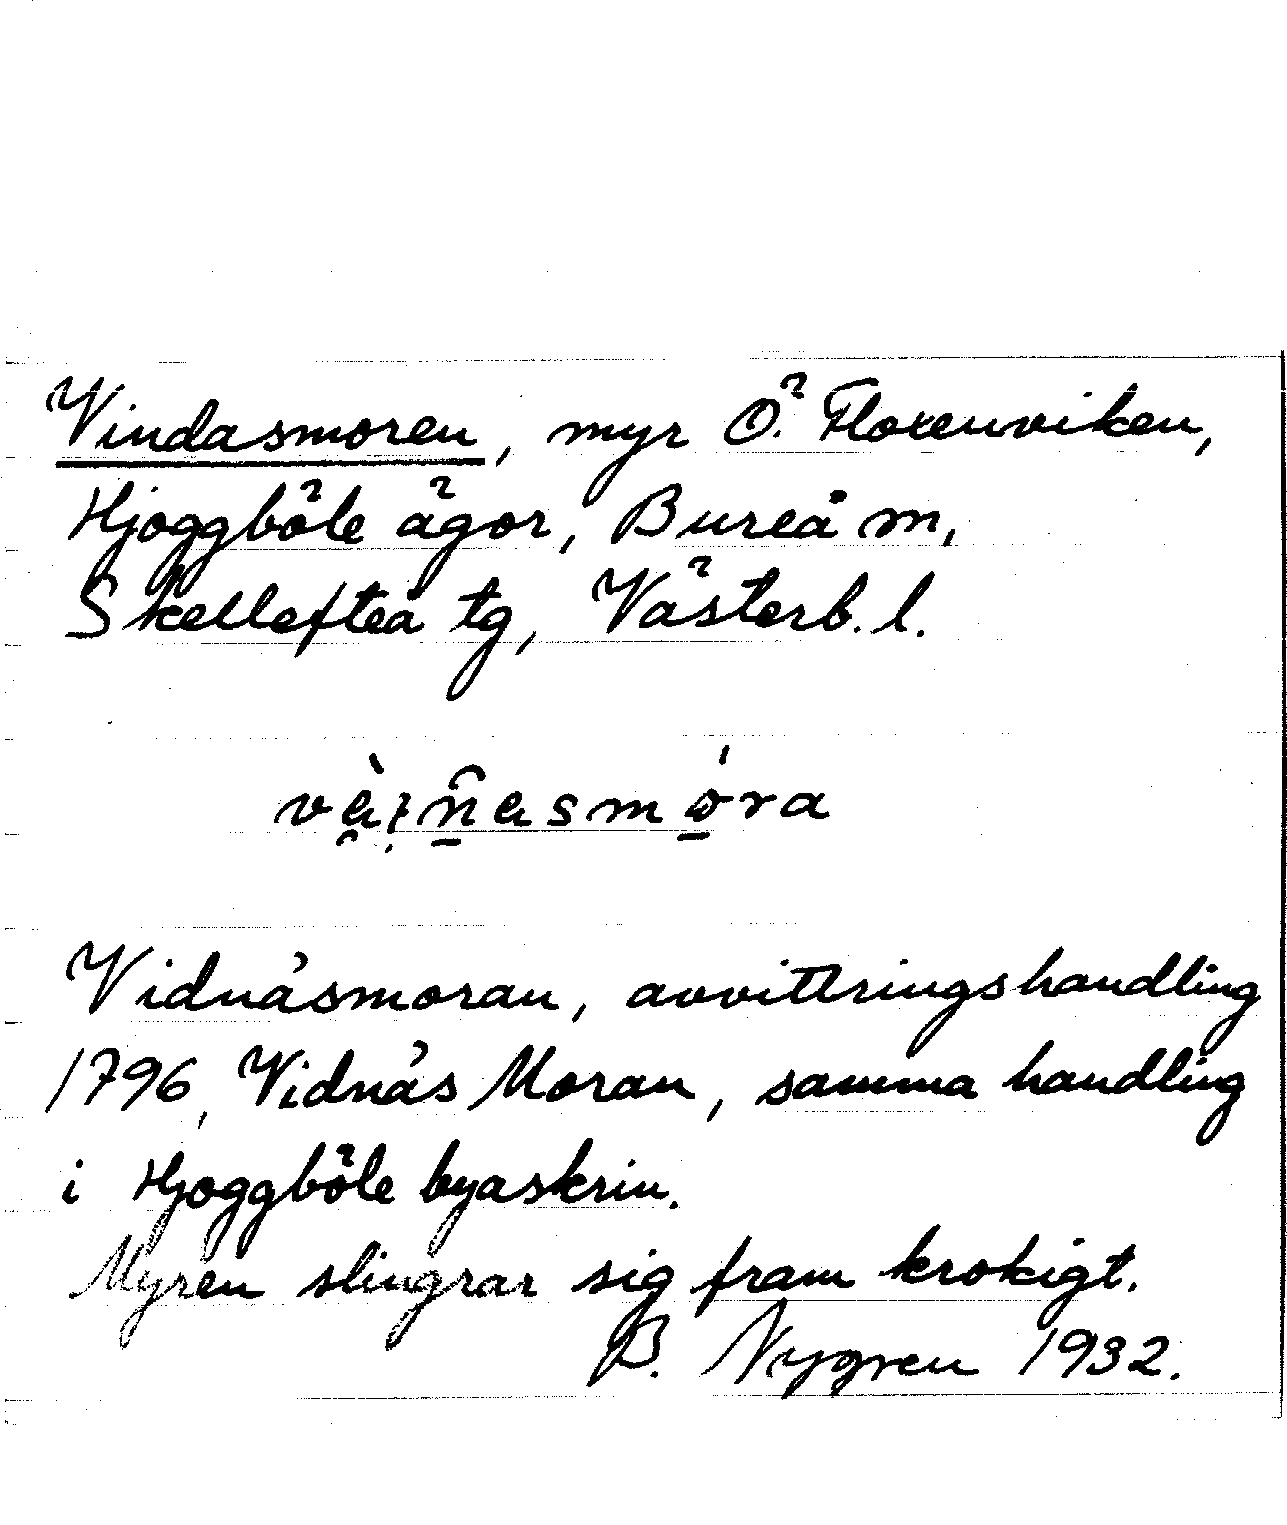 Vindasmoren, myr Ö. Florenviken,
Hjoggböle ägor, Bureå m,
Skellefteå tg, Västerb. l.
Vidnäsmoran, avvittringshandling
1796, Vidnäs Moran, samma handling
i Hjoggböle byaskrin.
Myren slingrar sig fram krokigt.
B. Nygren 1932.